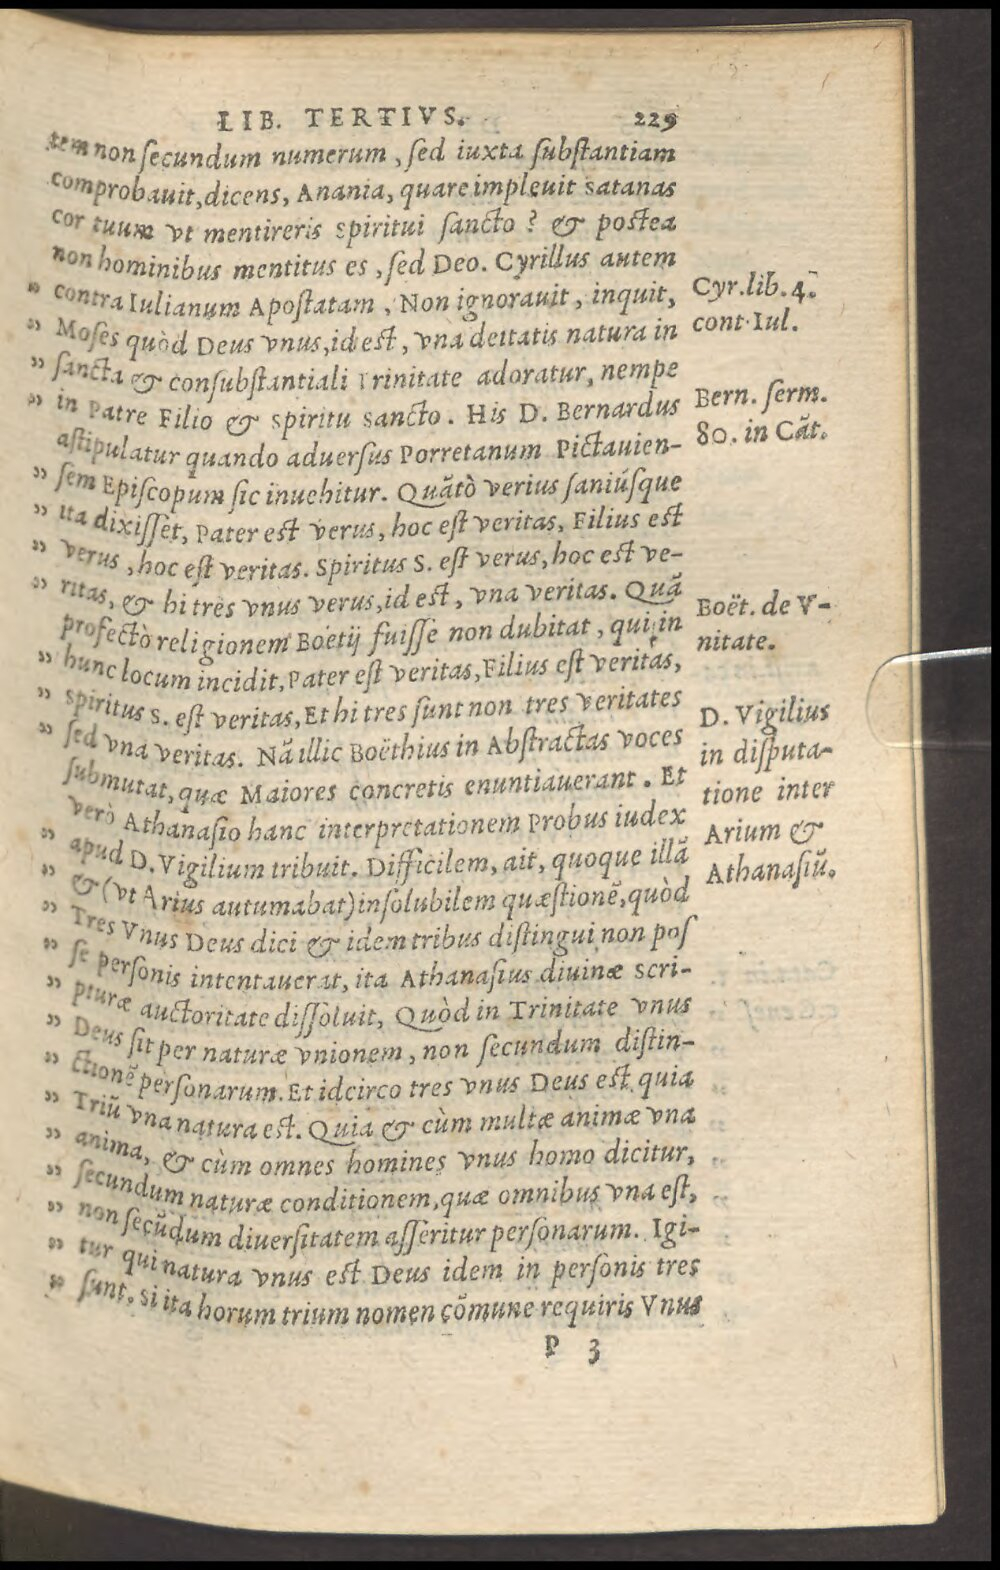 LIB. TERTIVS. 229
tem non ſecundum numerum, ſed iuxta ſubſtantiam
comprobauit, dicens, Anania, quare impleuit Satanas
cor tuum vt mentireris Spiritui ſancto? & poſtea
non hominibus mentitus es, ſed Deo. Cyrillus autem
„ contra Iulianum Apoſtatam, Non ignorauit, inquit,
„ Moſes quòd Deus vnus, id eſt, vna deitatis natura in
„ ſancta & conſubſtantiali Trinitate adoratur, nempe
„ in Patre Filio & Spiritu Sancto. His D. Bernardus
aſtipulatur quando aduerſus Porretanum Pictauien-
„ ſem Epiſcopum ſic inuehitur. Quātò verius ſaniúſque
„ ita dixiſſet, Pater eſt verus, hoc eſt veritas, Filius eſt
„ verus, hoc eſt veritas. Spiritus S. eſt verus, hoc eſt ve-
„ ritas, & hi tres vnus verus, id eſt, vna veritas. Quā
profectò religionem Boëtij fuiſſe non dubitat, qui in
„ hunc locum incidit, Pater eſt veritas, Filius eſt veritas,
„ Spiritus S. eſt veritas, Et hi tres ſunt non tres veritates
„ ſed vna veritas. Nā illic Boëthius in Abſtractas voces
ſubmutat, quæ Maiores concretis enuntiauerant. Et
verò Athanaſio hanc interpretationem Probus iudex
„ apud D. Vigilium tribuit. Difficilem, ait, quoque illā
„ & (vt Arius autumabat) inſolubilem quæſtionē, quòd
„ Tres Vnus Deus dici & idem tribus diſtingui non poſ
„ ſe perſonis intentauerat, ita Athanaſius diuinæ Scri-
„ pturæ auctoritate diſſoluit, Quòd in Trinitate vnus
„ Deus ſit per naturæ vnionem, non ſecundum diſtin-
„ ctionē perſonarum. Et idcirco tres vnus Deus eſt quia
„ Triū vna natura eſt. Quia & cùm multæ animæ vna
„ anima, & cùm omnes homines vnus homo dicitur,
„ ſecundum naturæ conditionem, quæ omnibus vna eſt,
„ non ſecūdum diuerſitatem aſſeritur perſonarum. Igi-
„ tur qui natura vnus eſt Deus idem in perſonis tres
„ ſunt. Si ita horum trium nomen cōmune requiris Vnus
P 3
Cyr. lib. 4.
cont. Iul.
Bern. ſerm.
80. in Cāt.
Boët. de V-
nitate.
D. Vigilius
in diſputa-
tione inter
Arium &
Athanaſiū.